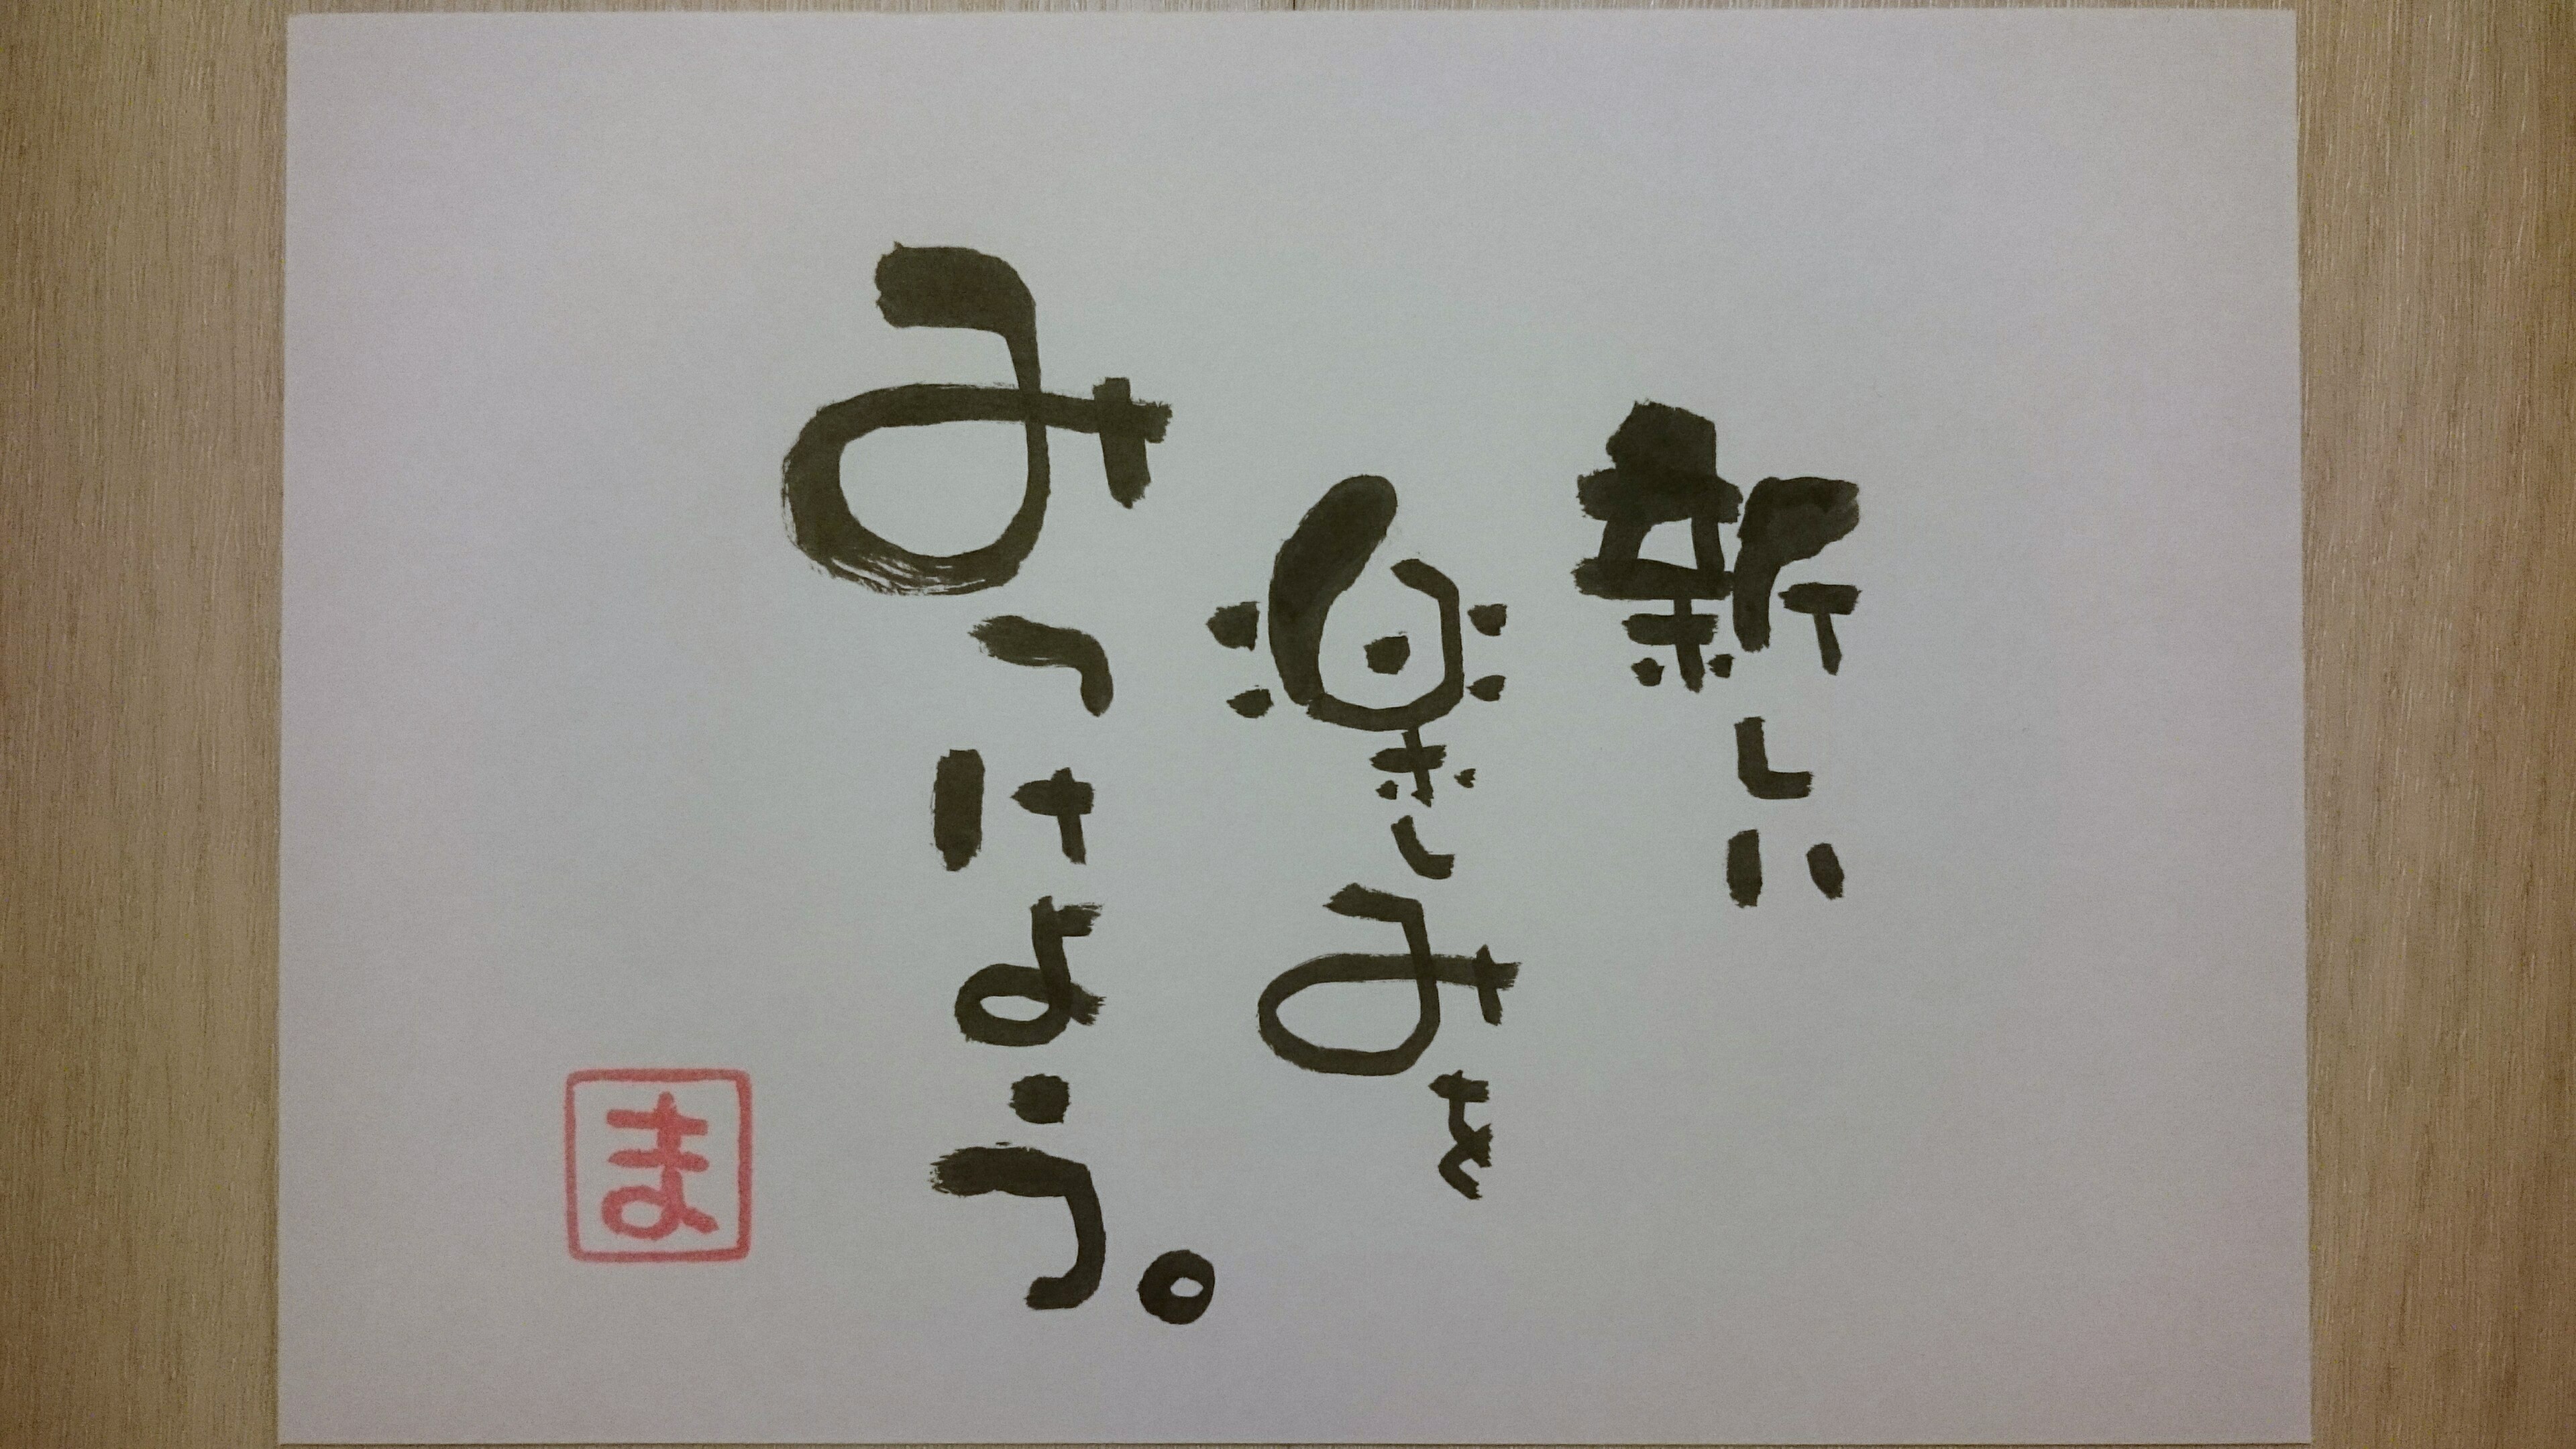 新しい
楽しみを
みつけよう。
ま